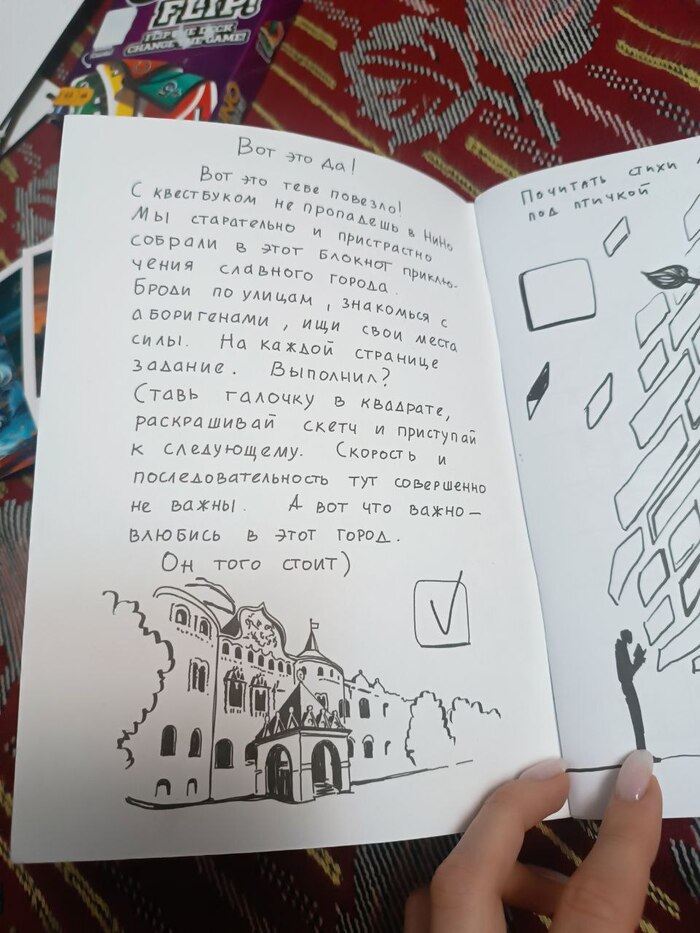 FLIP!
FLIP THE DECK
CHANGE THE GAME!
Вот это да!
Вот это тебе повезло!
С квестбуком не пропадешь в НиНо
Мы старательно и пристрастно
собрали в этот блокнот приклю-
чения славного города.
Броди по улицам, знакомься с
аборигенами, ищи свои места
силы. На каждой странице
задание. Выполнил?
Ставь галочку в квадрате,
раскрашивай скетч и приступай
к следующему. Скорость и
последовательность тут совершенно
не важны. А вот что важно—
влюбись в этот город.
Он того стоит)
Почитать стихи
под птичкой